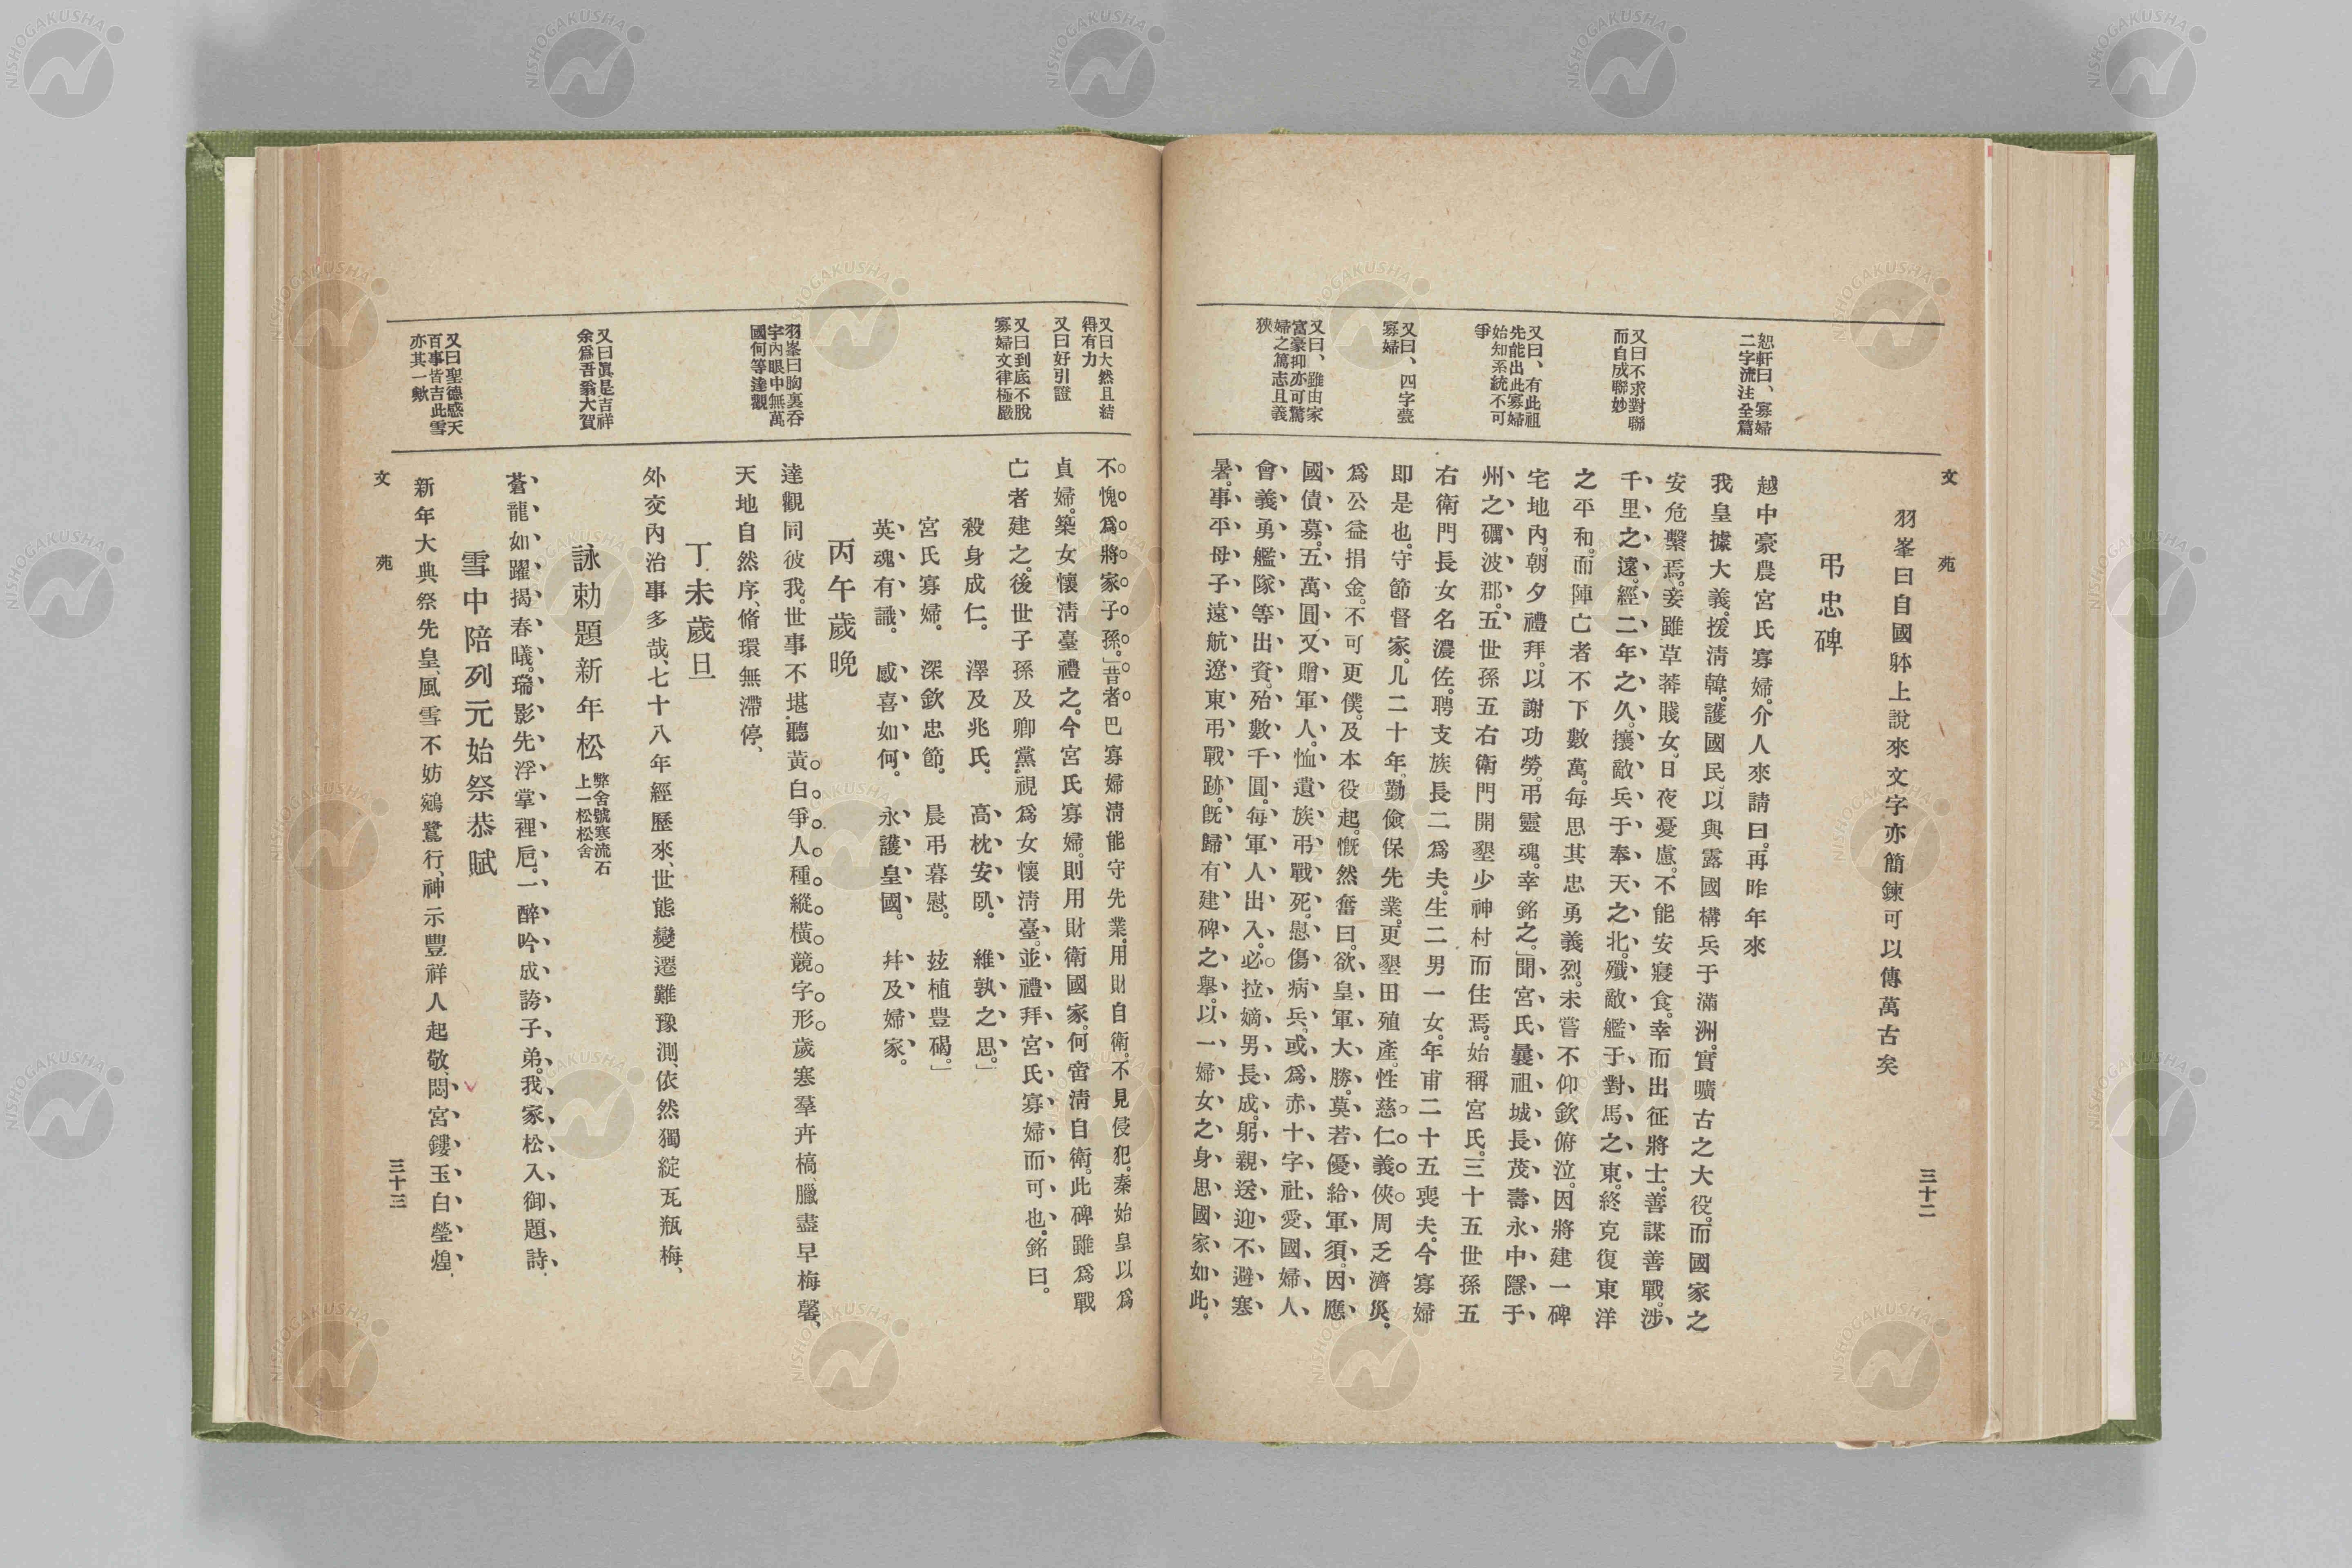 文苑
三十二
恕軒曰、寡婦
二字流注全篇
又曰不求對聯
而自成聯妙
又曰、有此祖
先能出此寡婦
始知系統不可
爭
又曰、四字甍
寡婦
又曰、雖由家
富豪抑亦可驚
婦之篤志且義
狹
羽峯曰自國躰上說來文字亦簡鍊可以傳萬古矣
弔忠碑
越中豪農宮氏寡婦。介人來請曰。再昨年來
我皇據大義。援淸韓。護國民、以與露國構兵于滿洲。實曠古之大役。而國家之
安危繫焉。妾雖草莽賤女、日夜憂慮。不能安寢食。幸而出征將士。善謀善戰。涉
千里之遠。經二年之久。攘敵兵于奉天之北。殲敵艦于對馬之東。終克復東洋
之平和。而陣亡者不下數萬。每思其忠勇義烈。未嘗不仰欽俯泣。因將建一碑
宅地內。朝夕禮拜。以謝功勞。弔靈魂。幸銘之。」聞宮氏曩祖城長茂壽永中隱于
州之礪波郡。五世孫五右衛門開墾少神村而住焉。始稱宮氏。三十五世孫五
右衛門長女名濃佐。聘支族長二爲夫。生二男一女。年甫二十五喪夫。今寡婦
即是也。守節督家。凡二十年。勤儉保先業。更墾田殖產。性慈仁義俠。周乏濟災。
爲公益捐金。不可更僕。及本役起。慨然奮曰。欲皇軍大勝。莫若優給軍須。因應
國債募。五萬圓。又贈軍人。恤遺族弔戰死。慰傷病兵。或爲赤十字社愛國婦人
會義勇艦隊等出資。殆數千圓。每軍人出入。必拉嫡男長成。躬親送迎不避寒
暑。事平母子遠航遼東弔戰跡。旣歸有建碑之擧。以一婦女之身思國家如此。
又曰大然且結
得有力
又曰好引證
又曰到底不脫
寡婦文律極嚴
羽峯曰胸裏呑
宇內眼中無萬
國何等達觀
又曰眞是吉祥
余爲吾翁大賀
又曰聖德感天
百事皆吉此雪
亦其一歟
不愧爲將家子孫。」昔者巴寡婦淸能守先業。用財自衛。不見侵犯。秦始皇以爲
貞婦。築女懷淸臺禮之。今宮氏寡婦。則用財衛國家。何啻淸自衛。此碑雖爲戰
亡者建之。後世子孫及鄕黨。視爲女懷淸臺。並禮拜宮氏寡婦而可也。銘曰。
殺身成仁。　澤及兆民。　高枕安臥。　維孰之思。」
宮氏寡婦。　深欽忠節。　晨弔暮慰。　玆植豊碣。」
英魂有識。　感喜如何。　永護皇國。　幷及婦家。
丙午歲晚
達觀同彼我。世事不堪聽黃白爭人種縱橫競字形。歲寒羣卉槁、臘盡早梅馨、
天地自然序、脩環無滯停、
丁未歲旦
外交內治事多哉、七十八年經歷來、世態變遷難豫測、依然獨綻瓦瓶梅、
詠勅題新年松 弊舍號寒流石上一松松舍
蒼龍如躍揭春曦。瑞影先浮掌裡巵。一醉吟成誇子弟。我家松入御題詩。
雪中陪列元始祭恭賦
新年大典祭先皇、風雪不妨鵷鷺行、神示豐祥人起敬、閟宮鏤玉白瑩煌、
文苑
三十三